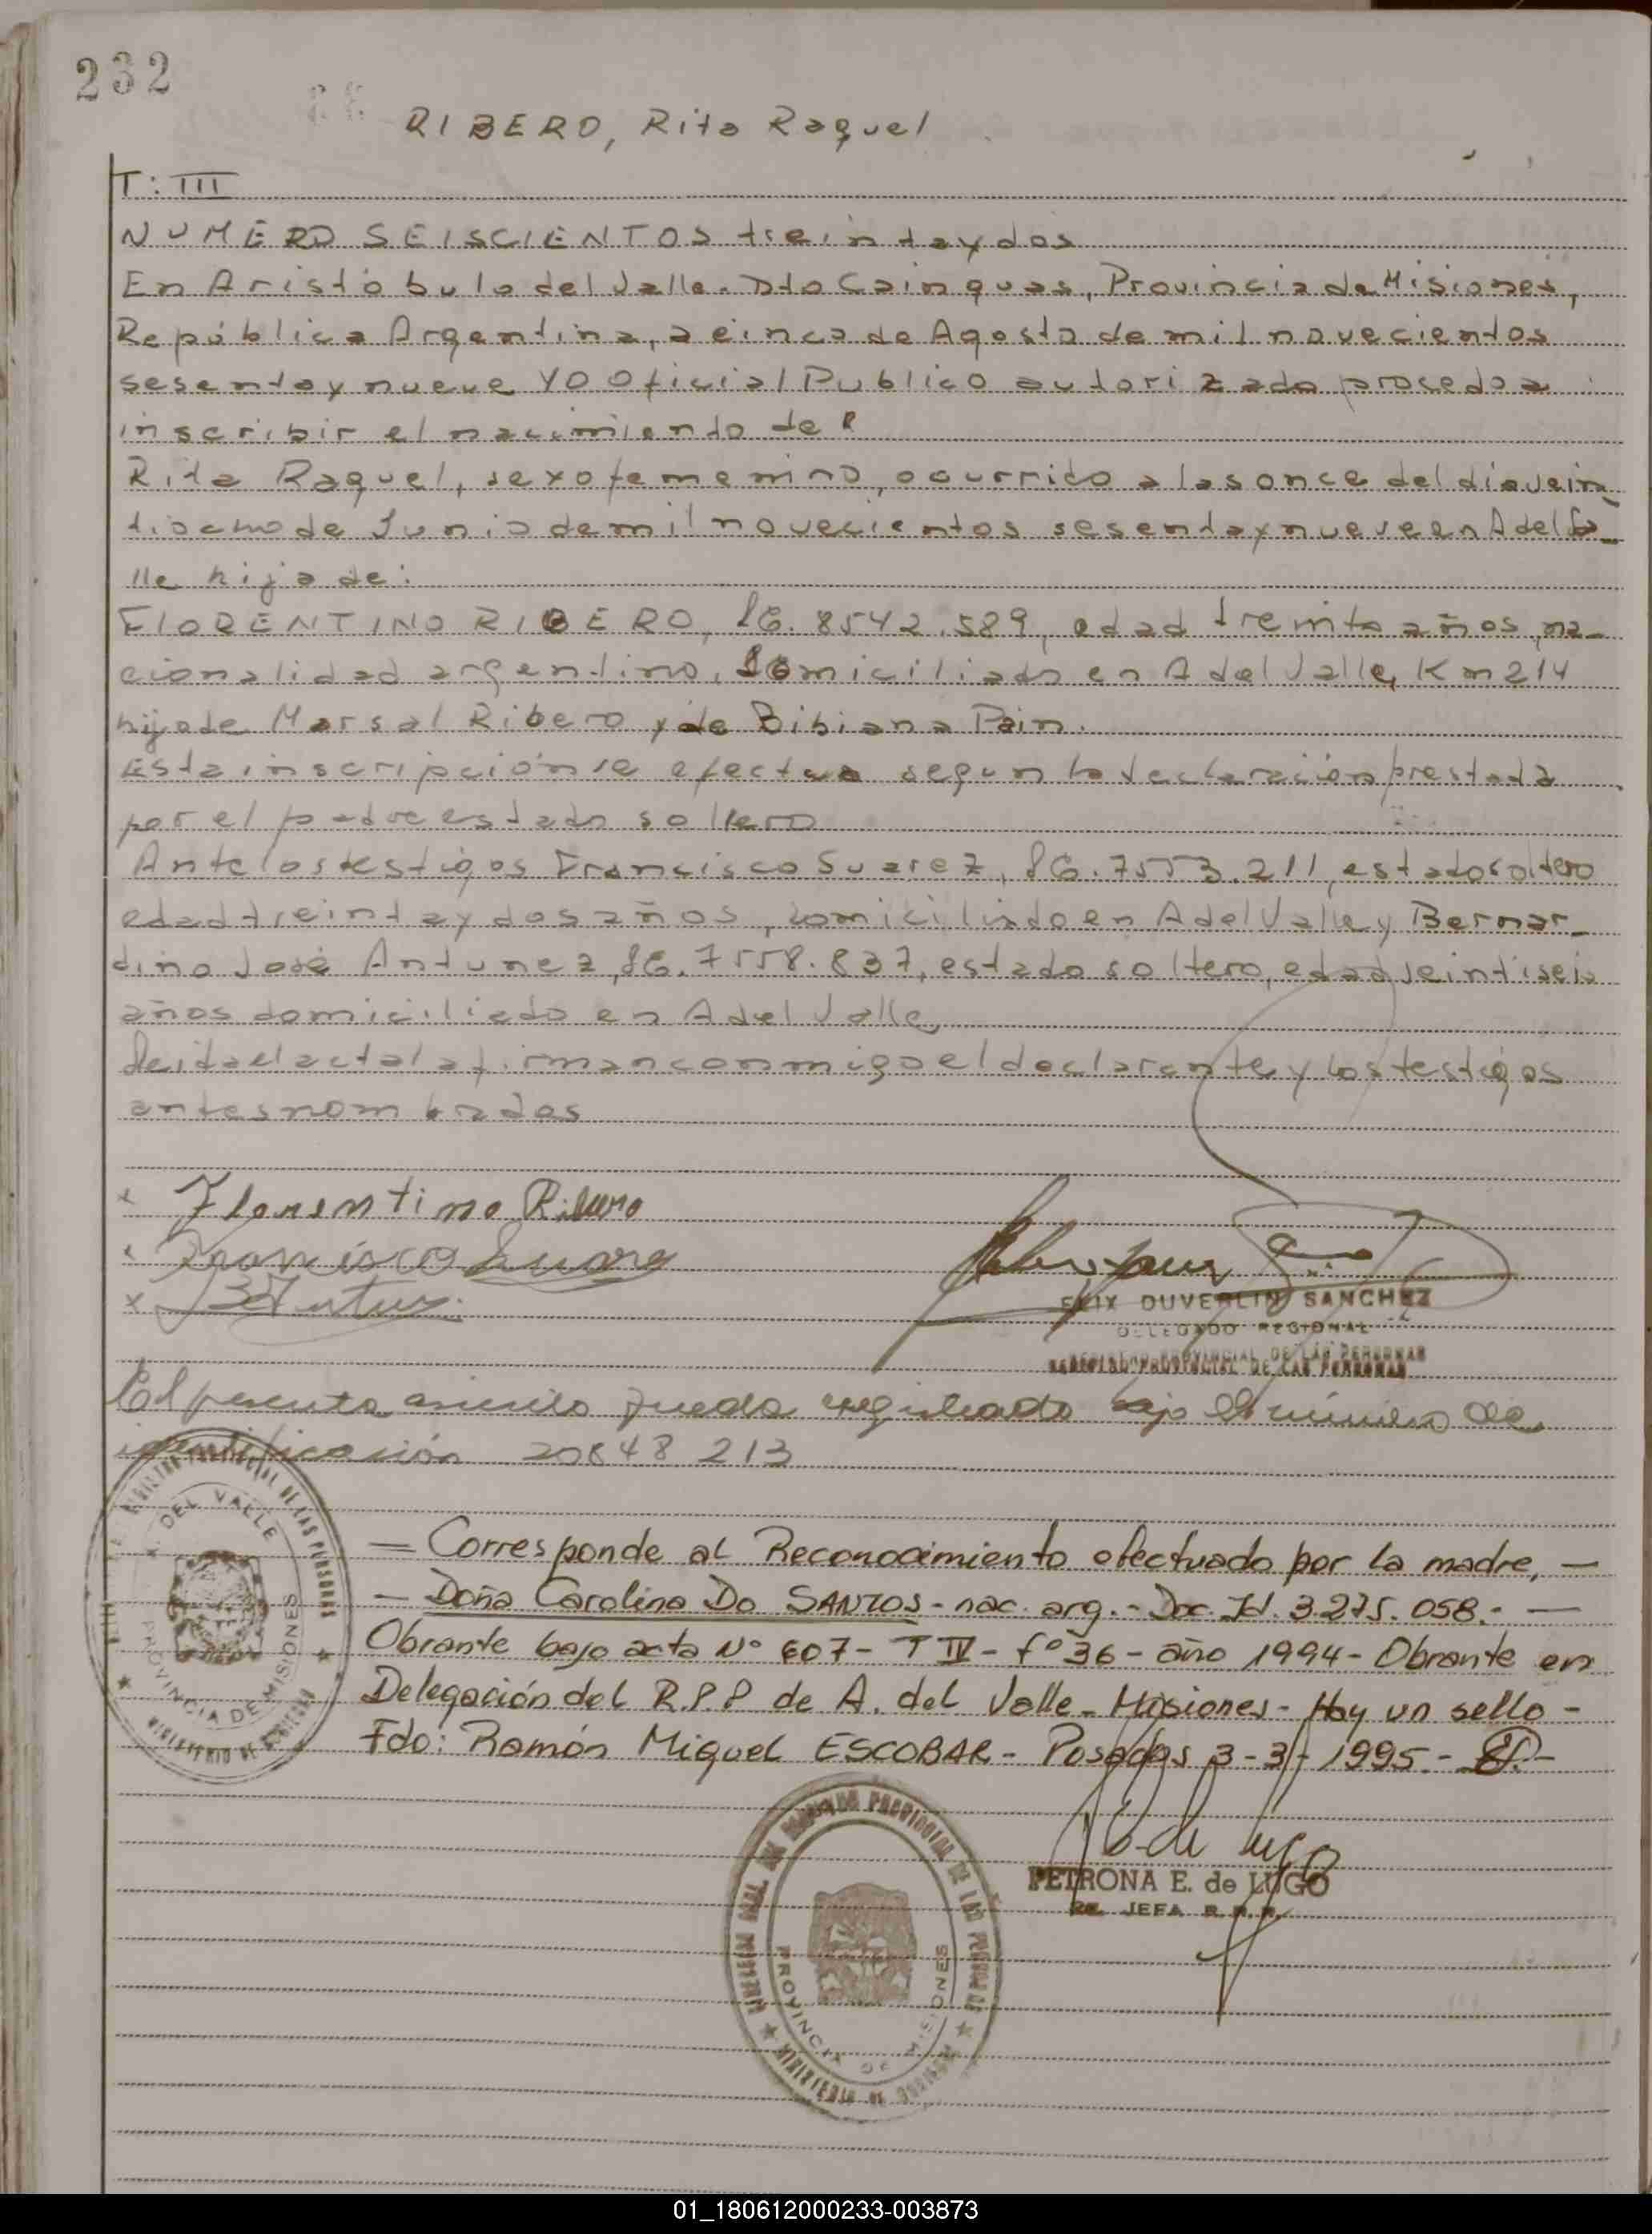 232
RIBERO, Rita Raquel
T: III
NUMERO SEISCIENTOS treintaydos
En Aristóbulo del Valle. Dto Cainguas, Provincia de Misiones,
República Argentina, a cinco de Agosto de mil novecientos
sesentaynueve YO Oficial Publico autorizado procedo a
inscribir el nacimiento de
Rita Raquel, sexo femenino, ocurrido a las once del dia vein-
tiocho de Junio de mil novecientos sesentaynueve en A del Va-
lle hija de:
FLORENTINO RIBERO, LE. 8542.589, edad treinta años, na-
cionalidad argentino, domiciliado en A del Valle, Km 214
hijo de Marsal Ribero y de Bibiana Pain.
Esta inscripción se efectua segun la declaración prestada
por el padre estado soltero
Ante los testigos Francisco Suarez, LE. 7553.211, estado soltero
edad treintaydos años, domiciliado en A del Valle y Bernar-
dino José Antunez, LE. 7558.837, estado soltero, edad veintiseis
años domiciliado en A del Valle
Leida el acta la firman conmigo el declarante y los testigos
antes nombrados
x Florentino Ribero
x Francisco Suarez
x
FELIX DUVERLIN SANCHEZ
DELEGADO REGIONAL
REGISTRO PROVINCIAL DE LAS PERSONAS
El presente asiento queda registrado bajo el número de
identificación 20848213
REGISTRO PROVINCIAL DE LAS PERSONAS
A. DEL VALLE
PROVINCIA DE MISIONES
MINISTERIO DE GOBIERNO
= Corresponde al Reconocimiento efectuado por la madre, —
— Doña Carolina Do SANTOS - nac. arg. - Doc. Id. 3.275.058.- —
Obrante bajo acta Nº 607 - T IV - fº 36 - año 1994 - Obrante en
Delegación del R.P.P de A. del Valle - Misiones - Hay un sello -
Fdo: Ramón Miguel ESCOBAR - Posadas 3-3-1995.-
E. de Lugo
PETRONA E. de LUGO
JEFA R.
DIRECCION GRAL. DEL REGISTRO PROVINCIAL DE LAS PERSONAS
PROVINCIA DE MISIONES
MINISTERIO DE GOBIERNO
01_180612000233-003873